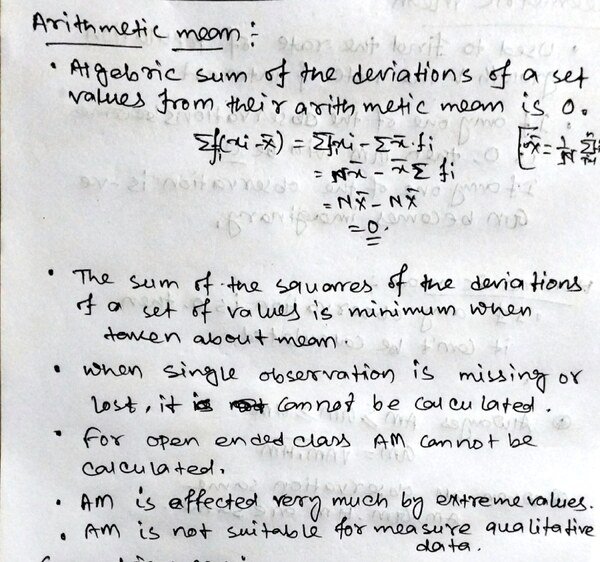 Arithmetic mean :
• Algebric sum of the deviations of a set
values from their arithmetic mean is 0.
Σfi(xi - x̄) = Σfixi - Σx̄.fi
= Nx̄ - x̄ Σ fi
= Nx̄ - Nx̄
= 0.
• The sum of the squares of the deviations
of a set of values is minimum when
taken about mean.
• when single observation is missing or
lost, it cannot be calculated.
• for open ended class AM cannot be
calculated.
• AM is affected very much by extreme values.
• AM is not suitable for measure qualitative
data.